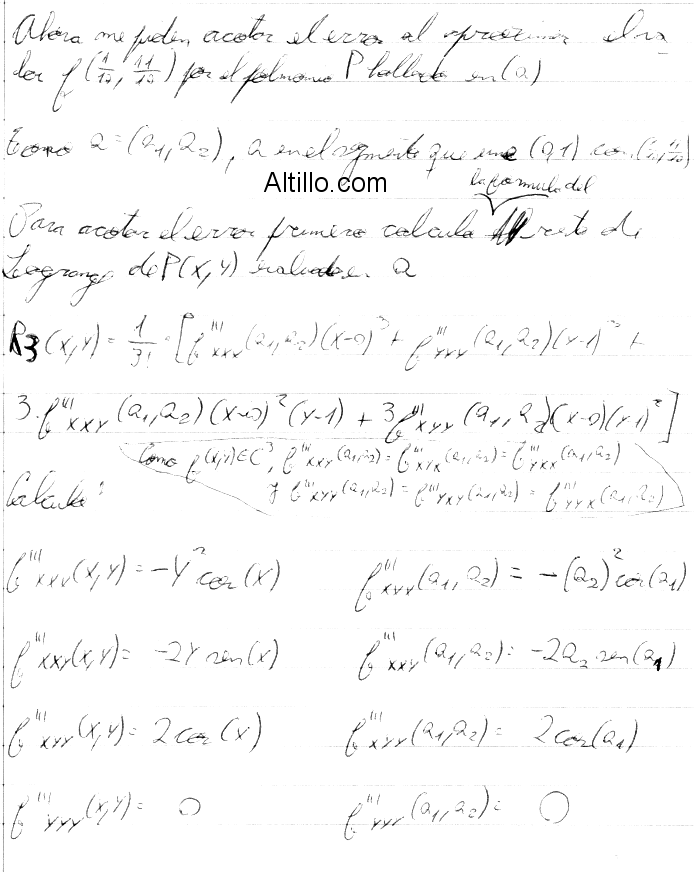 Ahora me piden acotar el error al aproximar el va-
lor f(1/10, 11/10) por el polinomio P hallado en (a)
Tomo a = (a1, a2), a en el segmento que une (0,1) con (1/10, 11/10)
Altillo.com
la formula del
Para acotar el error primero calculo resto de
Lagrange de P(x,y) evaluado en a
R3(x,y) = 1/3! · [f'''xxx(a1,a2)(x-0)³ + f'''yyy(a1,a2)(y-1)³ +
3·f'''xxy(a1,a2)(x-0)²(y-1) + 3f'''xyy(a1,a2)(x-0)(y-1)²]
Como f(x,y)∈C³, f'''xxy(a1,a2) = f'''xyx(a1,a2) = f'''yxx(a1,a2)
y f'''xyy(a1,a2) = f'''yxy(a1,a2) = f'''yyx(a1,a2)
Calculo:
f'''xxx(x,y) = -y² cos(x) f'''xxx(a1,a2) = -(a2)² cos(a1)
f'''xxy(x,y) = -2y sen(x) f'''xxy(a1,a2) = -2a2 sen(a1)
f'''xyy(x,y) = 2cos(x) f'''xyy(a1,a2) = 2cos(a1)
f'''yyy(x,y) = 0 f'''yyy(a1,a2) = 0